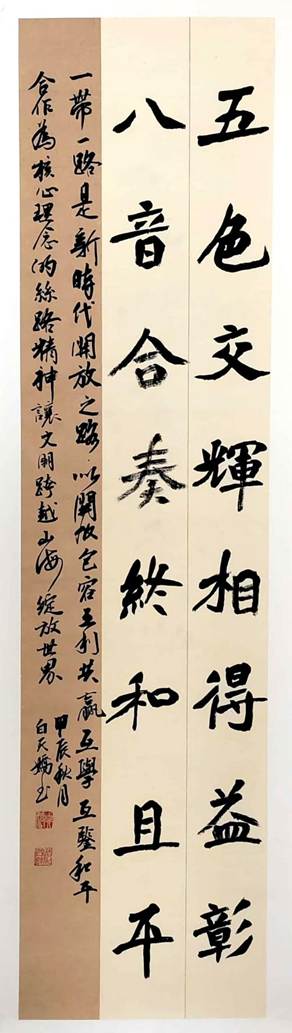 五色交輝相得益彰
八音合奏終和且平
一帶一路是新時代開放之路以開放包容互利共贏互學互鑒和平
合作為核心理念的絲路精神讓文明跨越山海綻放世界
甲辰秋月
白天鵝書